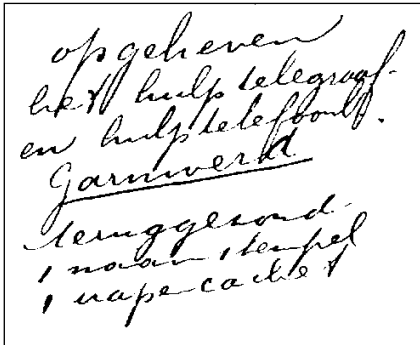 opgeheven
het hulptelegraaf-
en hulptelefoonk.
Garnwerd
teruggezond.
1 naamstempel
1 wapencachet